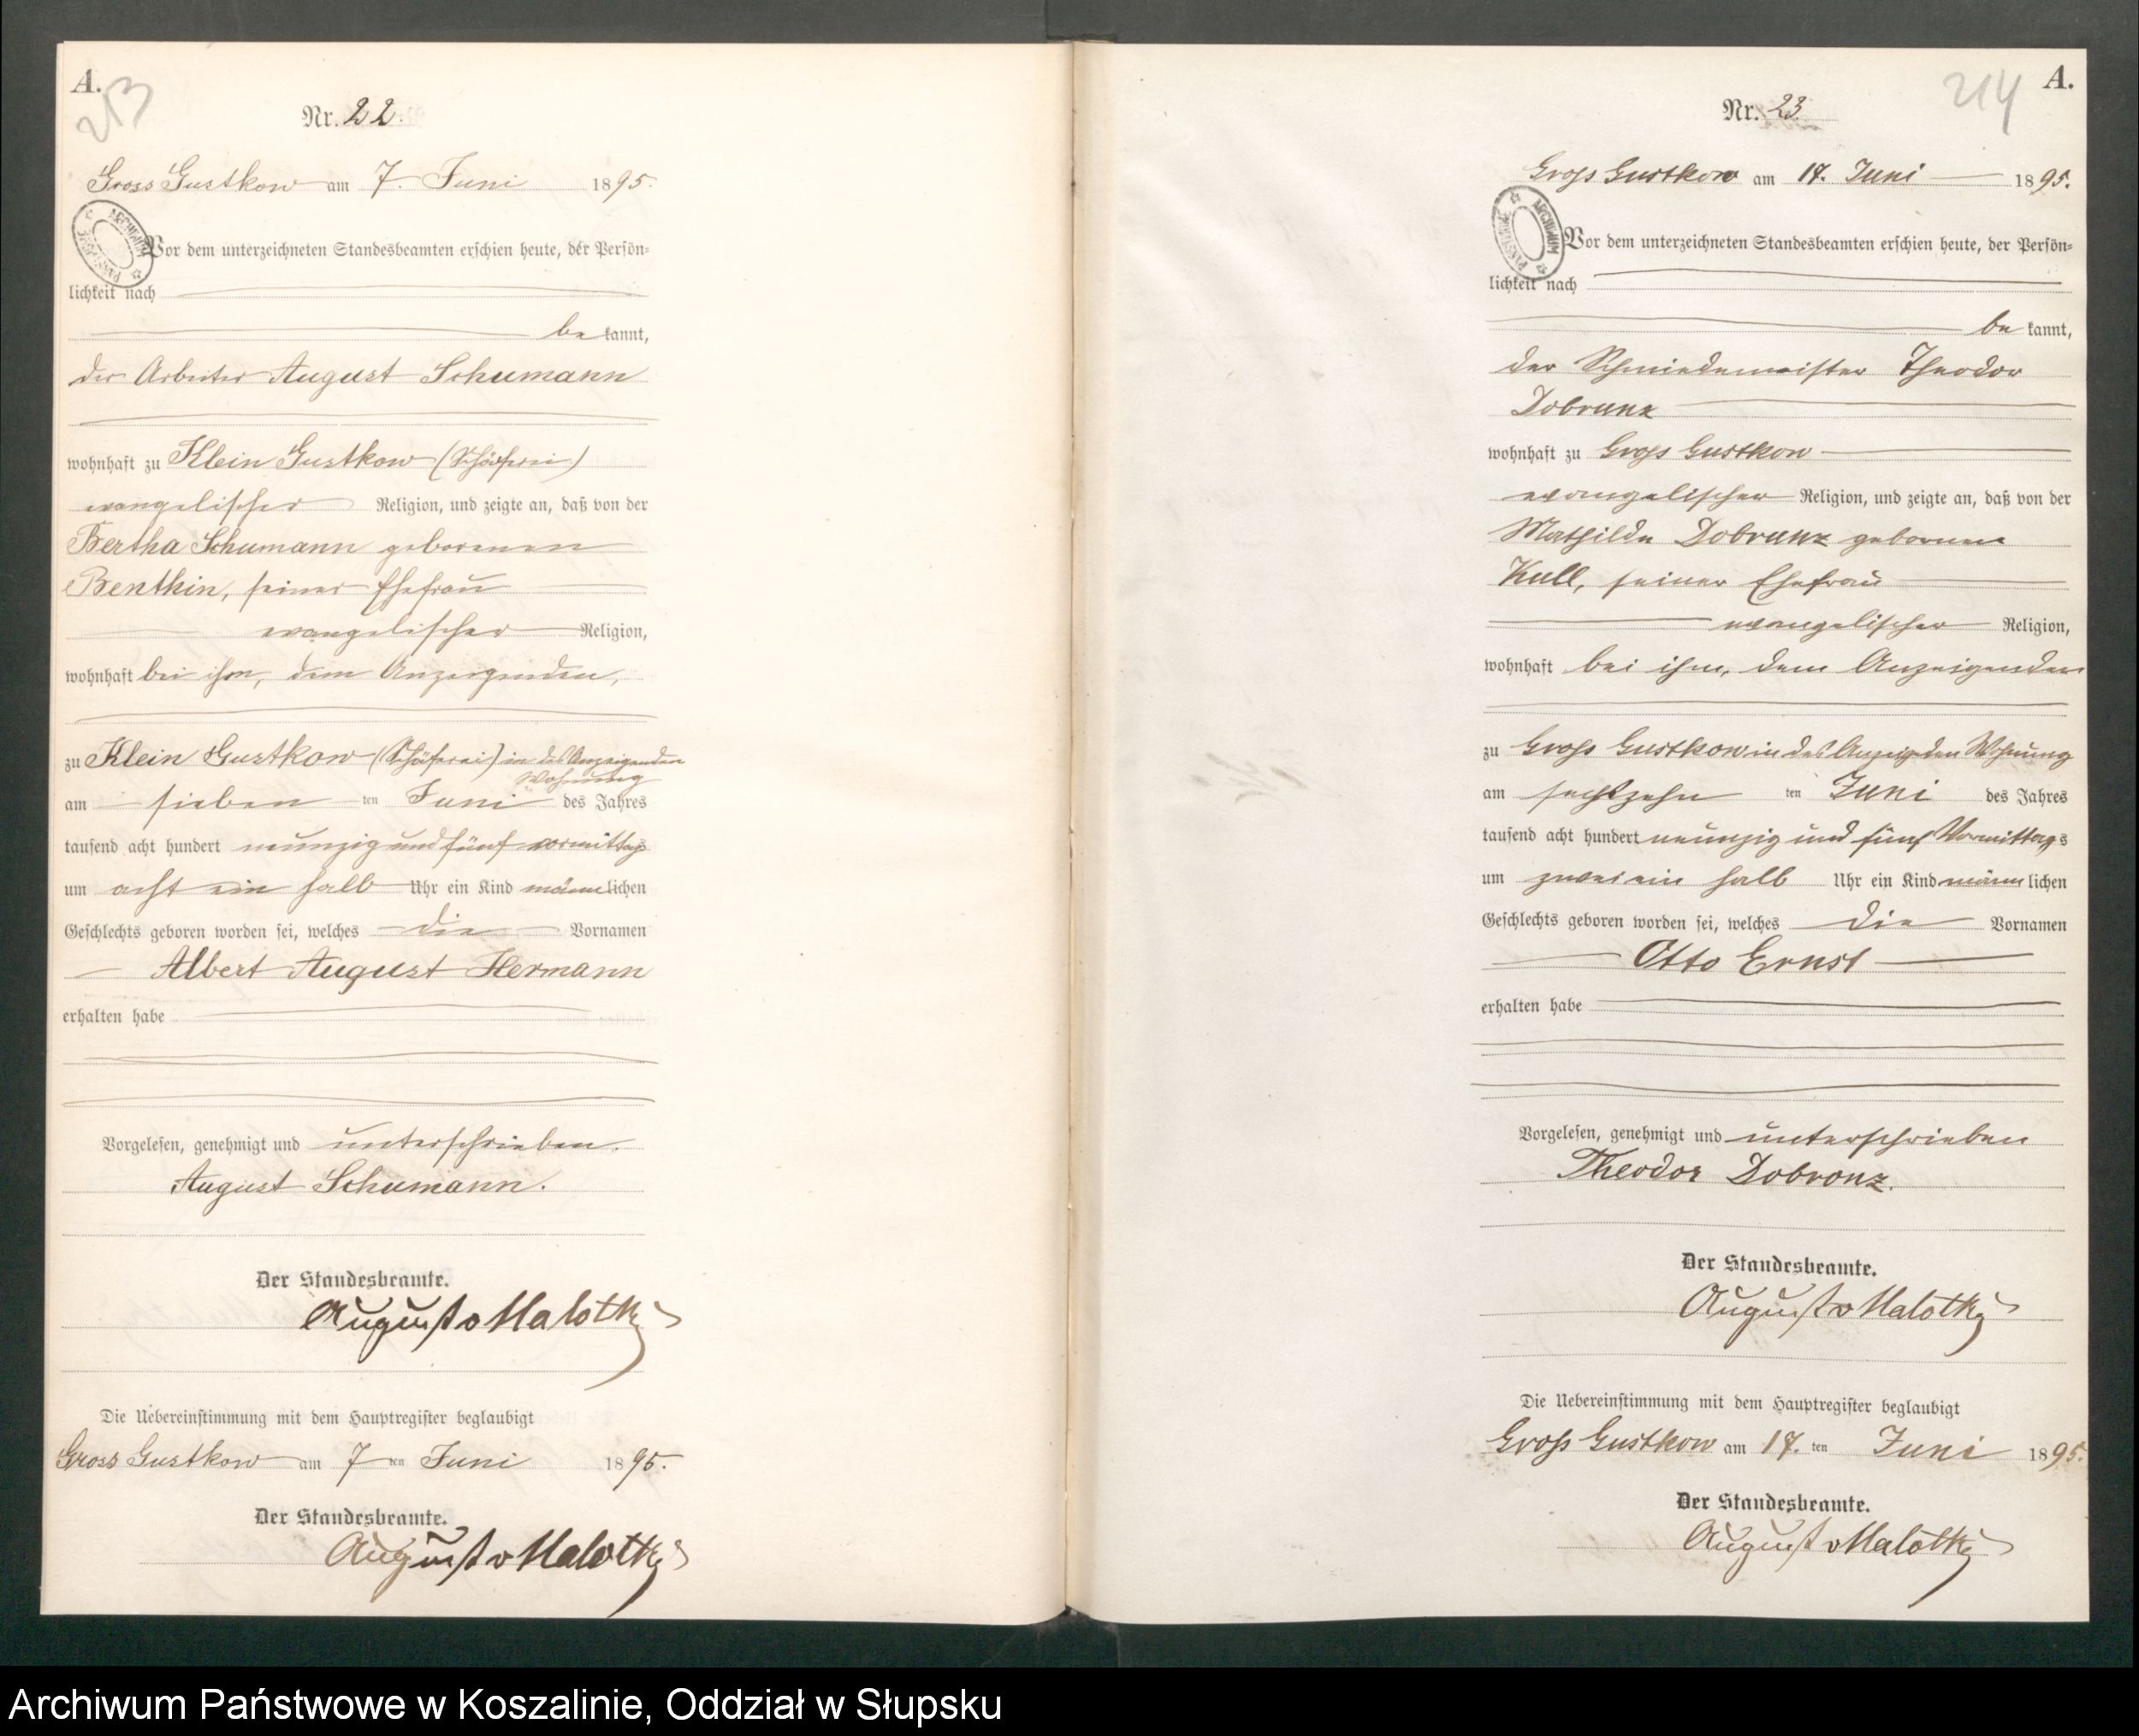 A.
213
Nr. 22.
Gross Gustkow am 7. Juni 1895.
Vor dem unterzeichneten Standesbeamten erschien heute, der Persön-
lichkeit nach
be kannt,
der Arbeiter August Schumann
wohnhaft zu Klein Gustkow (Schäferei)
evangelischer Religion, und zeigte an, daß von der
Bertha Schumann geborenen
Benthin, seiner Ehefrau
evangelischer Religion,
wohnhaft bei ihm, dem Anzeigenden,
zu Klein Gustkow (Schäferei) in des Anzeigenden
Wohnung
am sieben ten Juni des Jahres
tausend acht hundert neunzig und fünf vormittags
um acht ein halb Uhr ein Kind männlichen
Geschlechts geboren worden sei, welches die Vornamen
Albert August Hermann
erhalten habe
Vorgelesen, genehmigt und unterschrieben.
August Schumann.
Der Standesbeamte.
August v Malottky
Die Uebereinstimmung mit dem Hauptregister beglaubigt
Gross Gustkow am 7 ten Juni 1895.
Der Standesbeamte.
August v Malottky
214
A.
Nr. 23
Groß Gustkow am 17. Juni 1895.
ARCHIWUM PAŃSTWOWE
Vor dem unterzeichneten Standesbeamten erschien heute, der Persön-
lichkeit nach
be kannt,
der Schmiedemeister Theodor
Dobrunz
wohnhaft zu Groß Gustkow
evangelischer Religion, und zeigte an, daß von der
Mathilde Dobrunz geborene
Kull, seiner Ehefrau
evangelischer Religion,
wohnhaft bei ihm, dem Anzeigenden
zu Groß Gustkow in des Anzeigden Wohnung
am sechszehn ten Juni des Jahres
tausend acht hundert neunzig und fünf Vormittags
um zwei ein halb Uhr ein Kind männlichen
Geschlechts geboren worden sei, welches die Vornamen
Otto Ernst
erhalten habe
Vorgelesen, genehmigt und unterschrieben
Theodor Dobronz.
Der Standesbeamte.
August v Malottky
Die Uebereinstimmung mit dem Hauptregister beglaubigt
Groß Gustkow am 17. ten Juni 1895.
Der Standesbeamte.
August v Malottky
Archiwum Państwowe w Koszalinie, Oddział w Słupsku